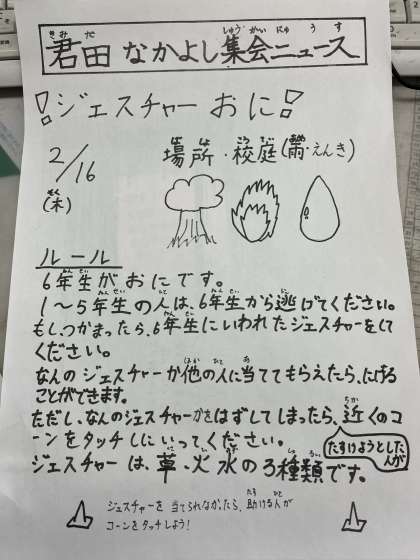 君田なかよし集会ニュース
ジェスチャーおに
2/16
(木)
場所・校庭(雨・えんき)
ルール
6年生がおにです。
1〜5年生の人は、6年生から逃げてください。
もし、つかまったら、6年生にいわれたジェスチャーをして
ください。
なんのジェスチャーか他の人に当ててもらえたら、にげる
ことができます。
ただし、なんのジェスチャーかをはずしてしまったら、近くのコ
ーンをタッチしにいってください。
たすけようとした人が
ジェスチャーは、草、火、水の3種類です。
ジェスチャーを当てられなかったら、助ける人が
コーンをタッチしよう!